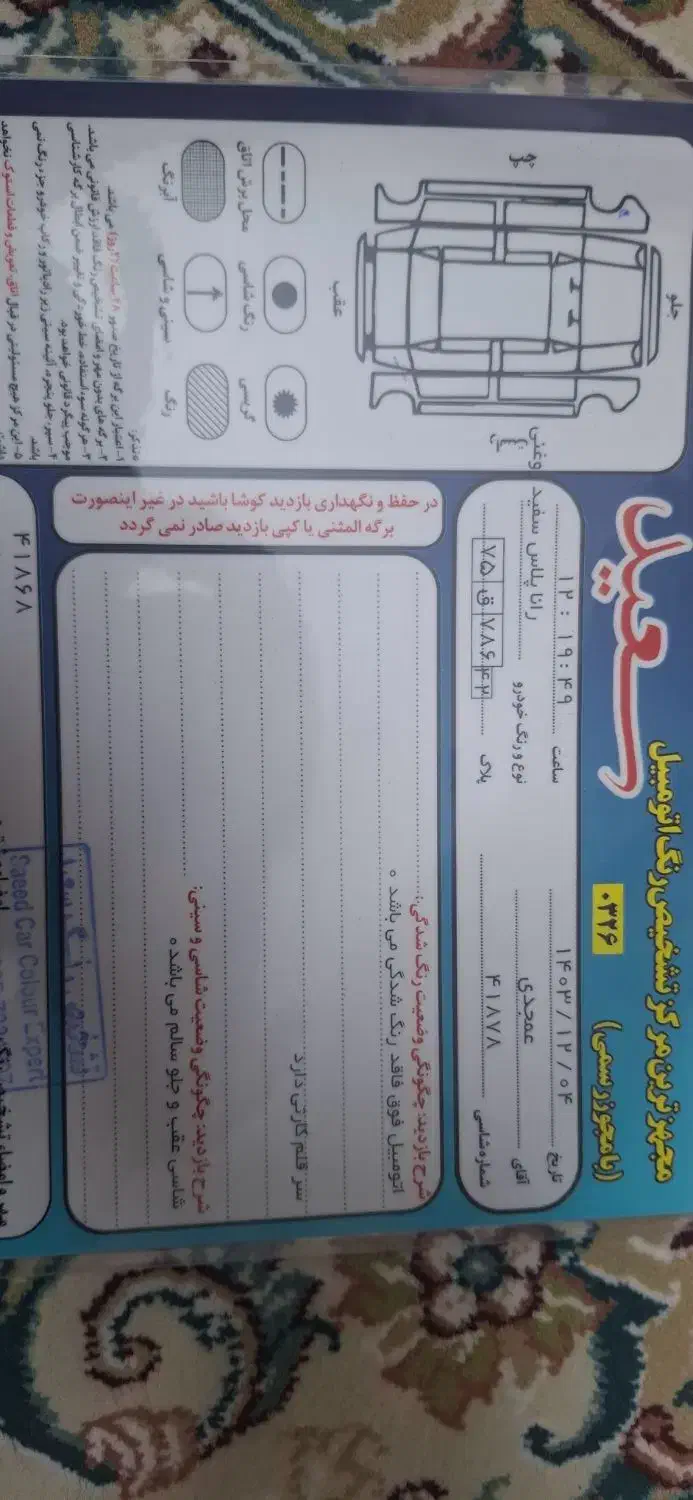 مجهزترین مرکز تشخیص رنگ اتومبیل
(با مجوز رسمی)
۰۳۲۶
سعید
تاریخ ۱۴۰۳/۱۲/۰۴
ساعت ۱۲:۱۹:۴۹
آقای عمجدی
نوع و رنگ خودرو رانا پلاس سفید
شماره شاسی ۴۱۸۷۸
پلاک ۷۵ ق ۷۸۶ ۴۲
شرح بازدید: چگونگی وضعیت رنگ شدگی:
اتومبیل فوق فاقد رنگ شدگی می باشد ه
سر قلم کارتی دارد
شرح بازدید: چگونگی وضعیت شاسی و سینی:
شاسی عقب و جلو سالم می باشد ه
Saeed Car Colour Expert
۴۱۸۶۸
در حفظ و نگهداری بازدید کوشا باشید در غیر اینصورت
برگه المثنی یا کپی بازدید صادر نمی گردد
جلو
عقب
محل برش اتاق
رنگ شاسی
گریسی
آبرنگ
سینی و شاسی
رنگ
تذکر:
۱- اعتبار این برگه از تاریخ صدور ۴۸ ساعت (۲ روز) می باشد.